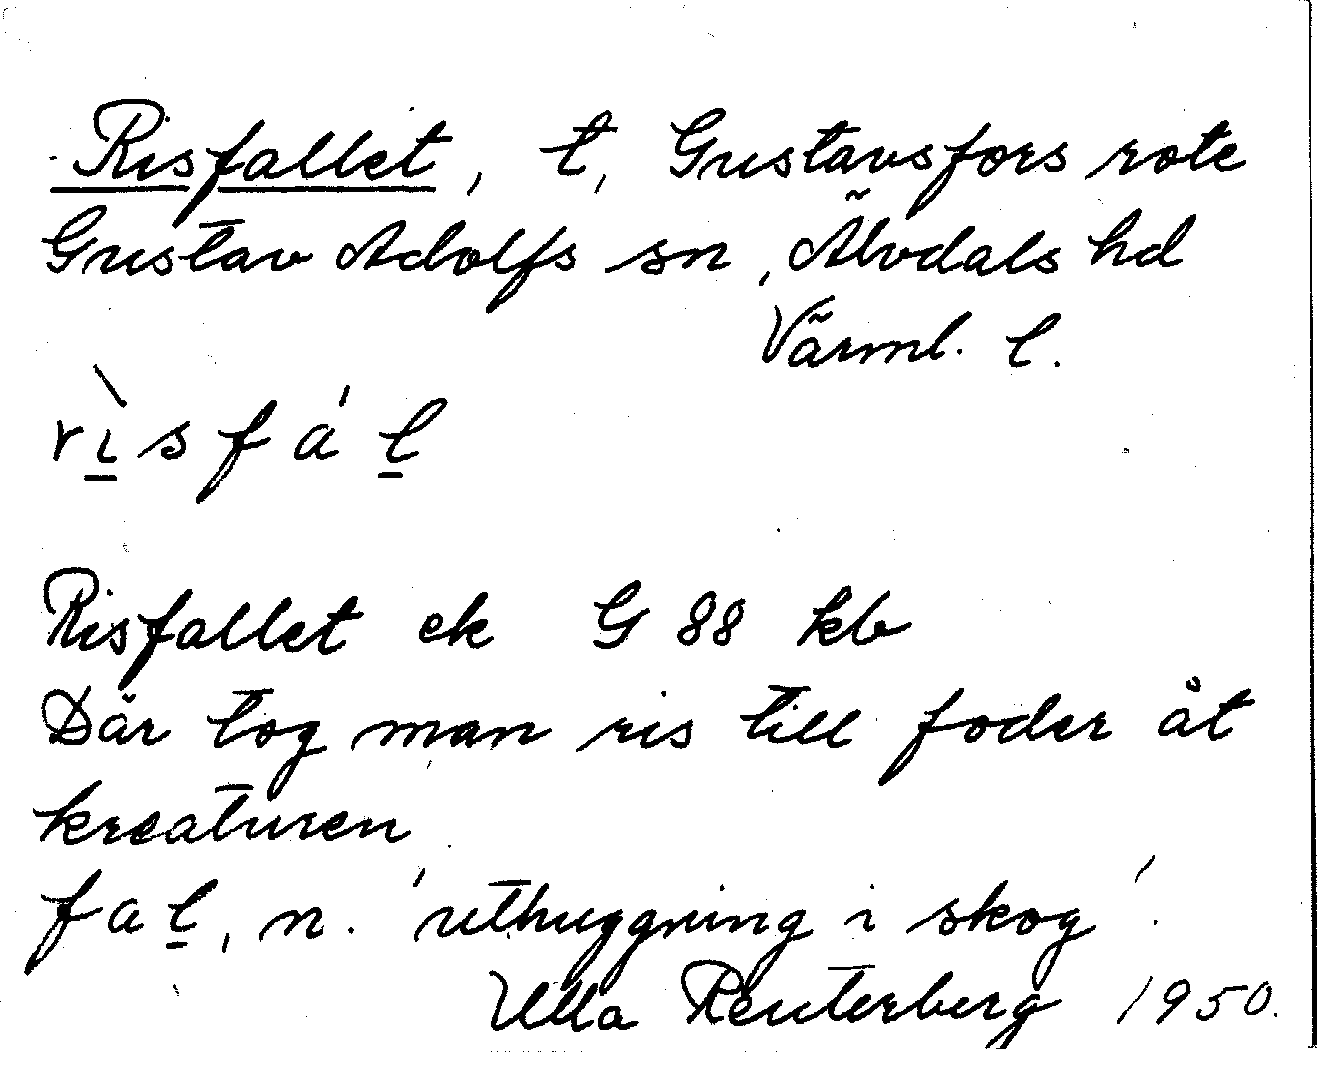 Risfallet, t, Gustavsfors rote
Gustav Adolfs sn, Älvdals hd
Värml. l.
rɩ̱̀sfáḻ
Risfallet ek G 88 kb
Där tog man ris till foder åt
kreaturen
faḻ, n. 'uthuggning i skog'.
Ulla Reuterberg 1950.